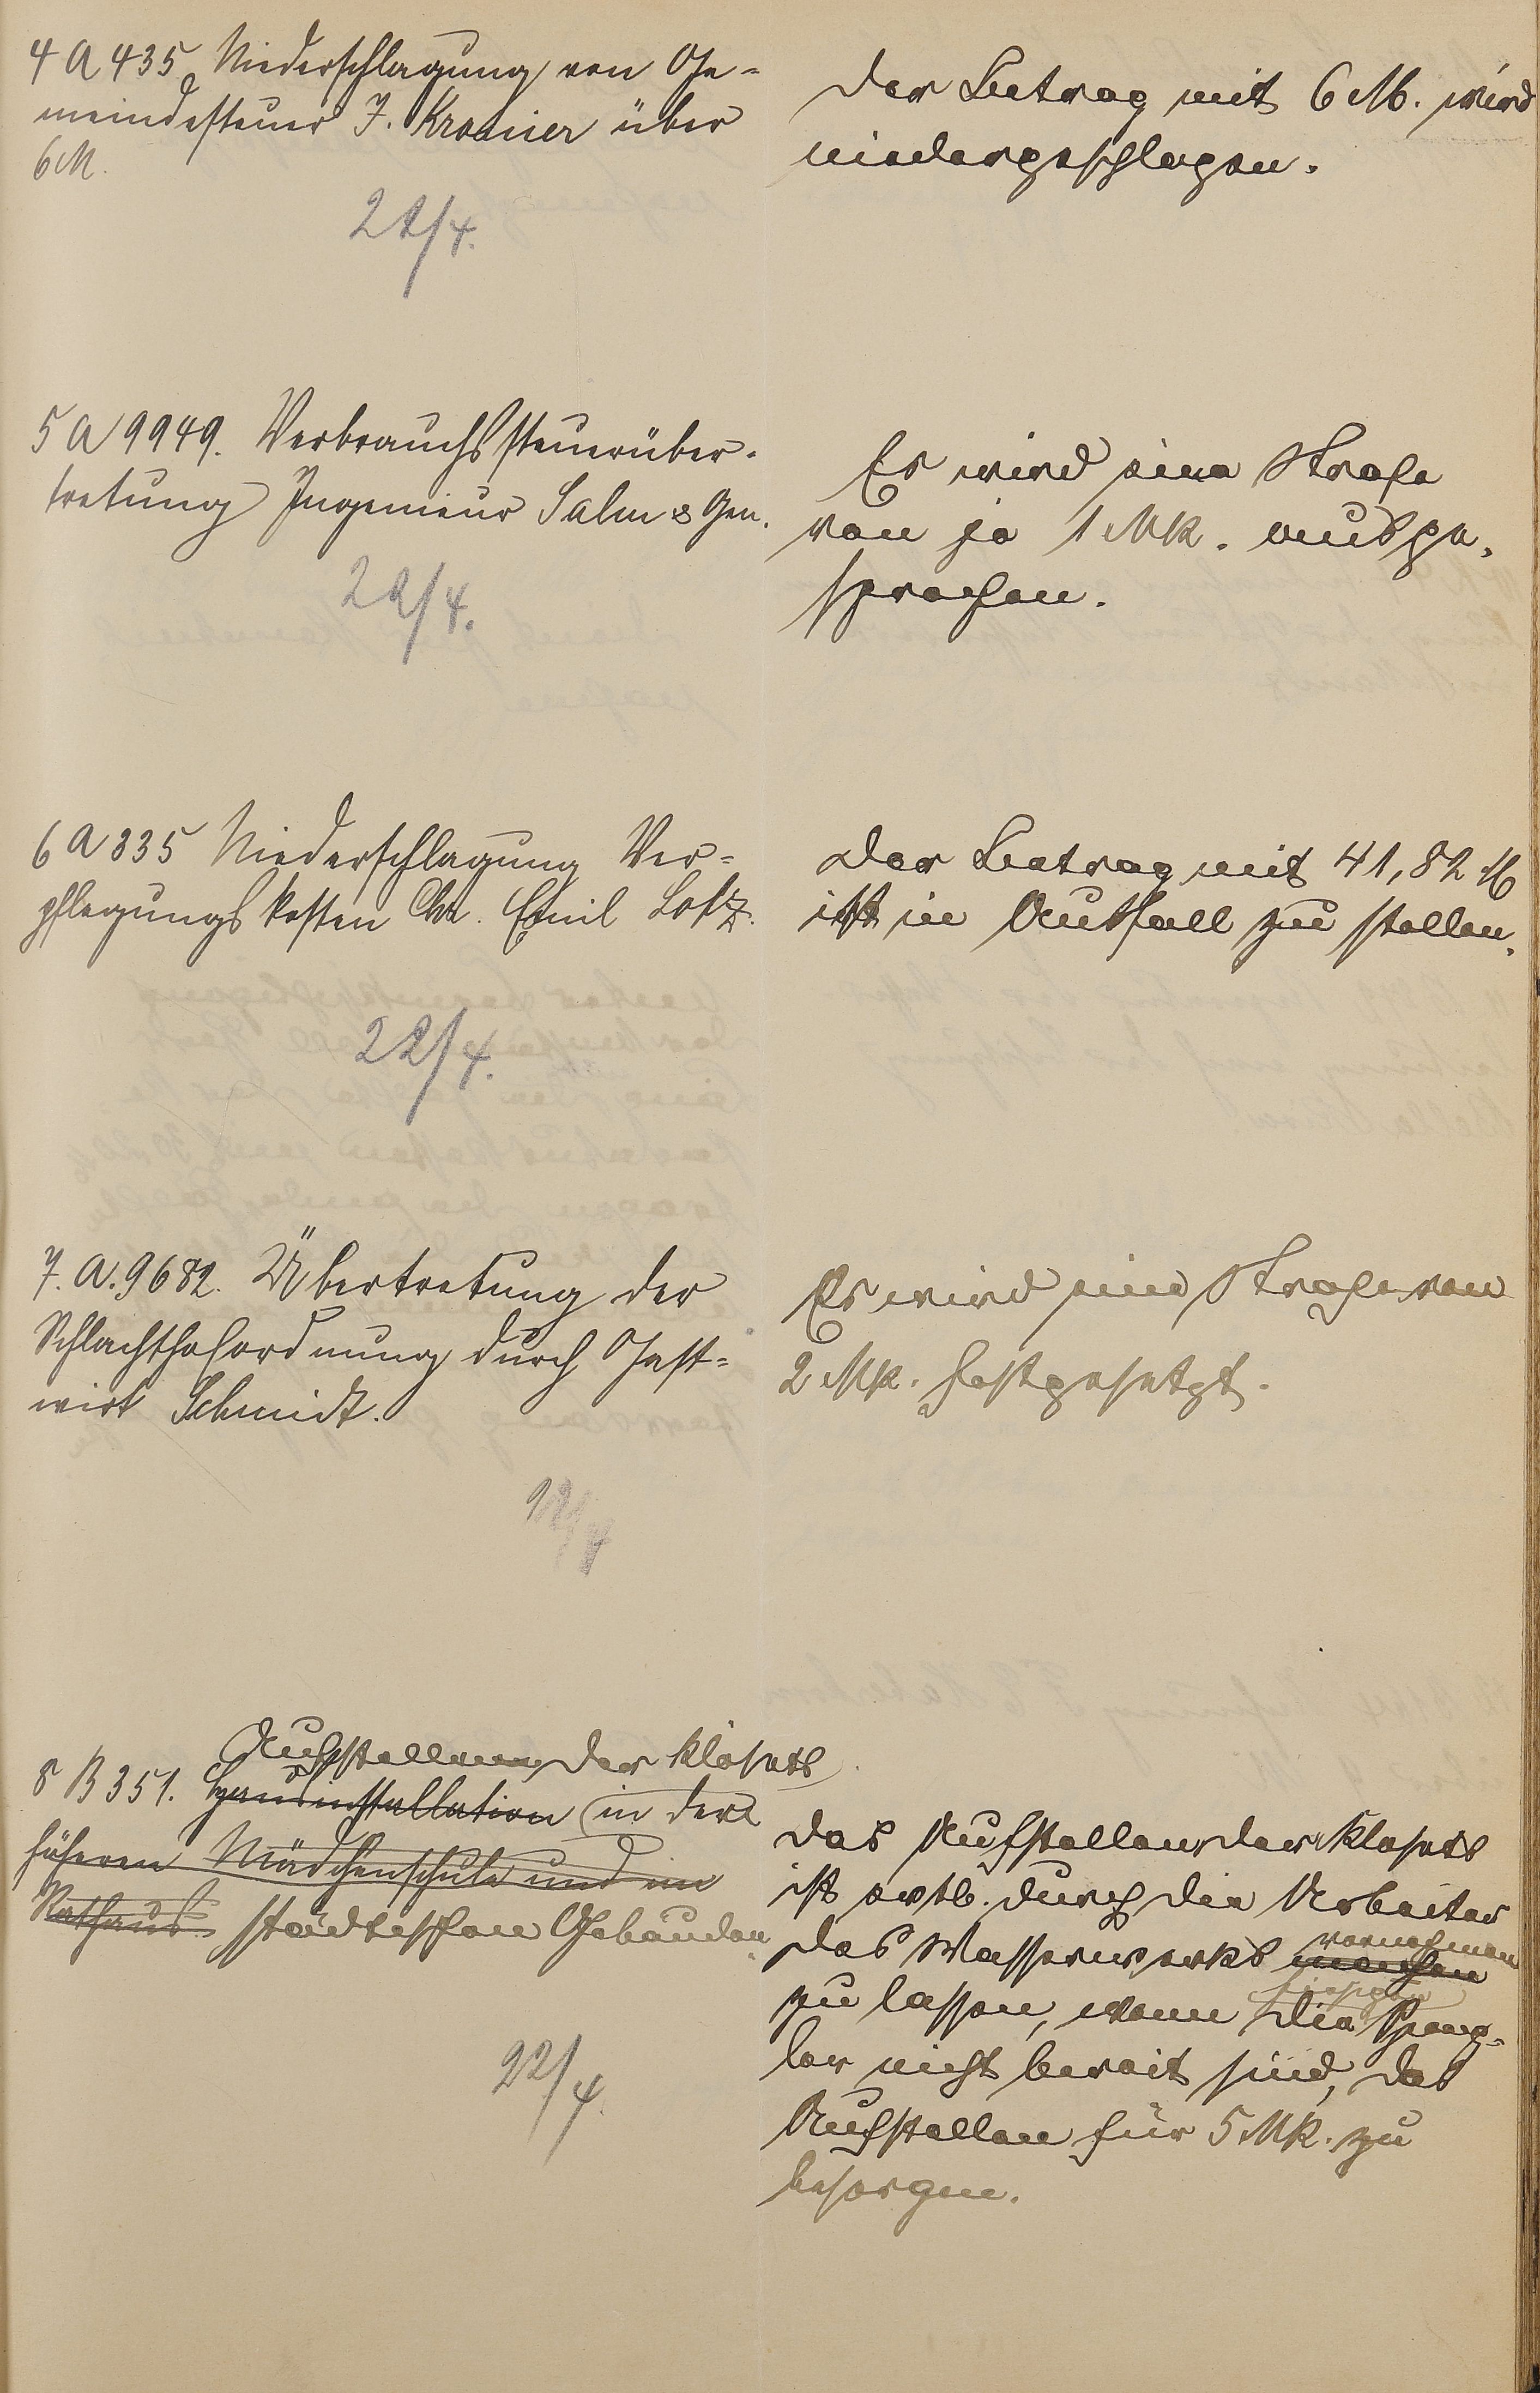 4 A 435 Niederschlagung von Ge-
meindesteuer J. Kramer über
6 M.
22/4.
Der Betrag mit 6 M. wird
niedergeschlagen.
5 A 9949. Verbrauchssteuerüber-
tretung Ingenieur Salm & Gen.
22/4.
Es wird eine Strafe
von je 1 Mk. ausge-
sprochen.
6 A 335 Niederschlagung Ver-
pflegungskosten Chr. Emil Lotz.
22/4.
Der Betrag mit 41,82 M
ist in Ausfall zu stellen.
7. A. 9682. Übertretung der
Schlachthofordnung durch Gast-
wirt Schmidt.
22/4
Es wird eine Strafe von
2 Mk. festgesetzt.
Aufstellen der Klosets
8 B 351. Hausinstallation in der
höheren Mädchenschule und im
Rathaus städtischen Gebäuden.
22/4.
Das Aufstellen der Klosets
ist evtl. durch die Arbeiter
des Wasserwerks machen vornehmen
zu lassen, wenn die hiesigen Speng-
ler nicht bereit sind, das
Aufstellen für 5 Mk. zu
besorgen.